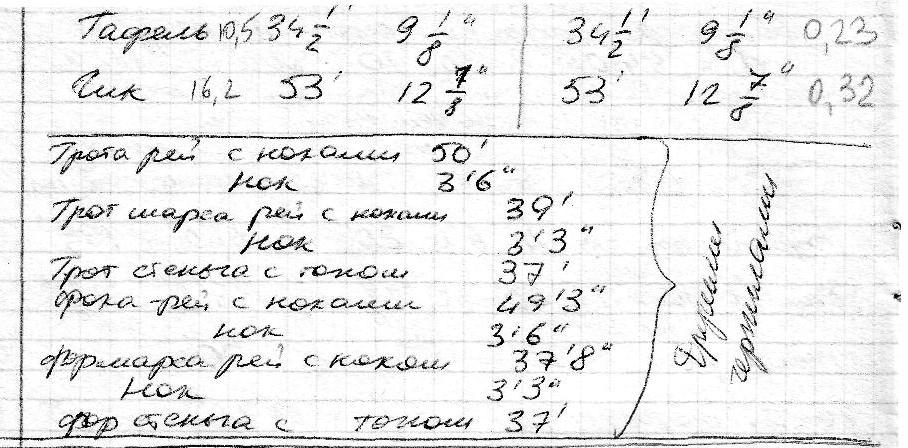 Гафель 10,5 34 1/2' 9 1/8" 34 1/2' 9 1/8" 0,23
Гик 16,2 53' 12 7/8" 53' 12 7/8" 0,32
Грота рей с ноками 50'
Нок 3'6"
Грот марса рей с ноками 39'
Нок 3'3"
Грот стеньга с топом 37'
Фока-рей с ноками 49'3"
нок 3'6"
Формарса рей с ноком 37'8"
Нок 3'3"
Фор стеньга с топом 37'
Другими
чернилами